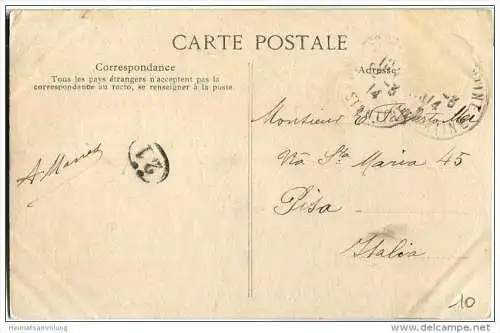 CARTE POSTALE
Correspondance
Tous les pays étrangers n'acceptent pas la
correspondance au recto, se renseigner à la poste.
Adresse
14
Monsieur
Via Sta Maria 45
Pisa
Italia
A.
21
10
Heimatsammlung
www.ansichtskartenversand.com